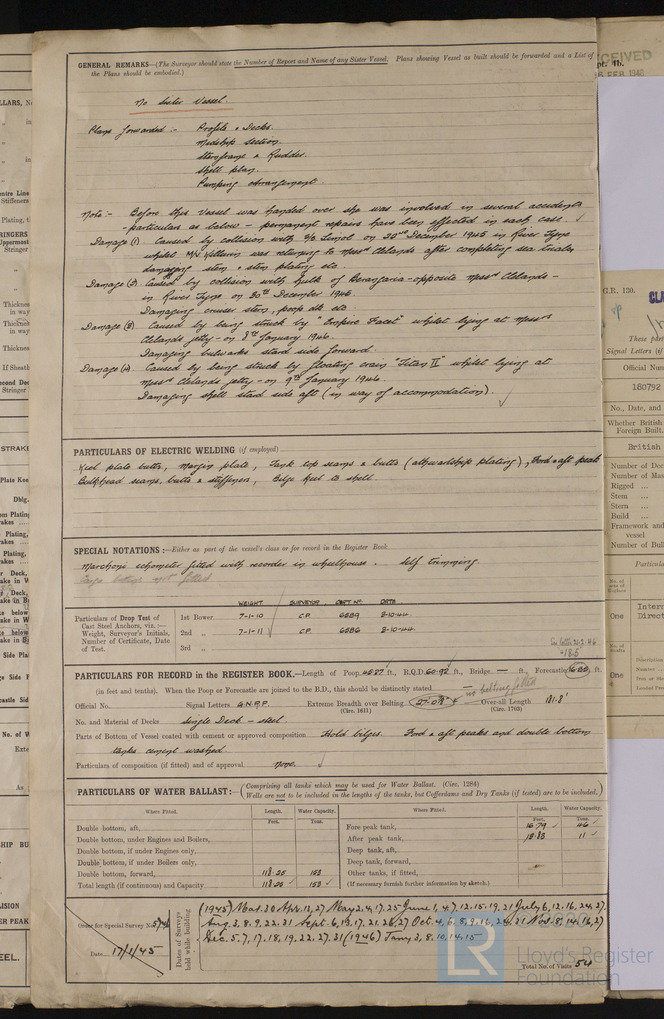 GENERAL REMARKS—(The Surveyor should state the Number of Report and Name of any Sister Vessel. Plans showing Vessel as built should be forwarded and a List of
the Plans should be embodied.)
No Sister Vessel.
Plans forwarded :- Profile & Decks.
Midship section.
Sternframe & Rudder.
Shell plan.
Pumping arrangement.
Note:- Before this vessel was handed over she was involved in several accidents
-particulars as below - permanent repairs have been effected in each case.
Damage (1) Caused by collision with on 20th December 1945 in River Tyne
whilst M/V was returning to Messrs Clelands after completing sea trials
damaging stem & stem plating etc.
Damage (2) Caused by collision with hulk of Berengaria - opposite Messrs Clelands -
in River Tyne on 30th December 1945.
Damaging cruiser stern, poop dk etc.
Damage (3) Caused by being struck by "Empire Facet" whilst lying at Messrs
Clelands jetty - on 8th January 1946.
Damaging bulwarks starb side forward.
Damage (4) Caused by being struck by floating crain "Titan II" whilst lying at
Messrs Clelands jetty - on 9th January 1946.
Damaging shell starb side aft (in way of accommodation).
PARTICULARS OF ELECTRIC WELDING (if employed)
Keel plate butts, Margin plate, Tank top seams & butts (athwartship plating), Ford & aft peak
Bulkhead seams, butts & stiffeners, Bilge keel to shell
SPECIAL NOTATIONS:—Either as part of the vessel's class or for record in the Register Book
Marchoni echometer fitted with recorder in wheelhouse. Self trimming.
Cargo battens not fitted
WEIGHT SURVEYOR CERT No. DATE
Particulars of Drop Test of
Cast Steel Anchors, viz.:—
Weight, Surveyor's Initials,
Number of Certificate, Date
of Test.
1st Bower 7-1-10 C.P. 6089 3-10-44
2nd „ 7-1-11 C.P. 6086 3-10-44
3rd „
PARTICULARS FOR RECORD in the REGISTER BOOK.—Length of Poop ft., R.Q.D. 60.92 ft., Bridge — ft., Forecastle ft.
(in feet and tenths). When the Poop or Forecastle are joined to the B.D., this should be distinctly stated
no belting fitted
Official No. Signal Letters G.N.R.P. Extreme Breadth over Belting Over-all Length 181.8'
(Circ. 1611) (Circ. 1703)
No. and Material of Decks Single Deck - steel
Parts of Bottom of Vessel coated with cement or approved composition Hold bilges. Ford & aft peaks and double bottom
tanks cement washed.
Particulars of composition (if fitted) and of approval none.
PARTICULARS OF WATER BALLAST:— (Comprising all tanks which may be used for Water Ballast. (Circ. 1284)
Wells are not to be included in the lengths of the tanks, but Cofferdams and Dry Tanks (if tested) are to be included.)
Where Fitted. Length. Water Capacity. Where Fitted. Length. Water Capacity.
Feet. Tons. Feet. Tons.
Double bottom, aft, Fore peak tank, 16.79 46
Double bottom, under Engines and Boilers, After peak tank, 10.83 11
Double bottom, if under Engines only, Deep tank, aft,
Double bottom, if under Boilers only, Deep tank, forward,
Double bottom, forward, 118.25 153 Other tanks, if fitted,
Total length (if continuous) and Capacity 118.25 153 (If necessary furnish further information by sketch.)
Order for Special Survey No.
Date 17/1/45
Dates of Surveys held while building
(1945) Mar. 30 Apr. 13, 27 May 2, 4, 17, 25 June 1, 4, 7, 12, 15, 19, 21 July 6, 12, 16, 24, 27.
Aug 3, 8, 9, 22, 31 Sept. 6, 13, 17, 21, 26, 27 Oct. 4, 24, 31 Nov. 8, 14, 16, 27
Dec. 5, 7, 17, 18, 19, 22, 27, 31 (1946) Jany 3, 8, 10, 14, 15
Total No. of Visits 54
LR
Lloyd's Register
Foundation
FEB 1946
G.R. 130.
These part
Signal Letters (if
Official Num
180792
No., Date, and
Whether British
Foreign Built,
British
Number of Dec
Number of Mas
Rigged ...
Stem ...
Stern ...
Build ...
Framework and
vessel
Number of Bul
Particula
One
One